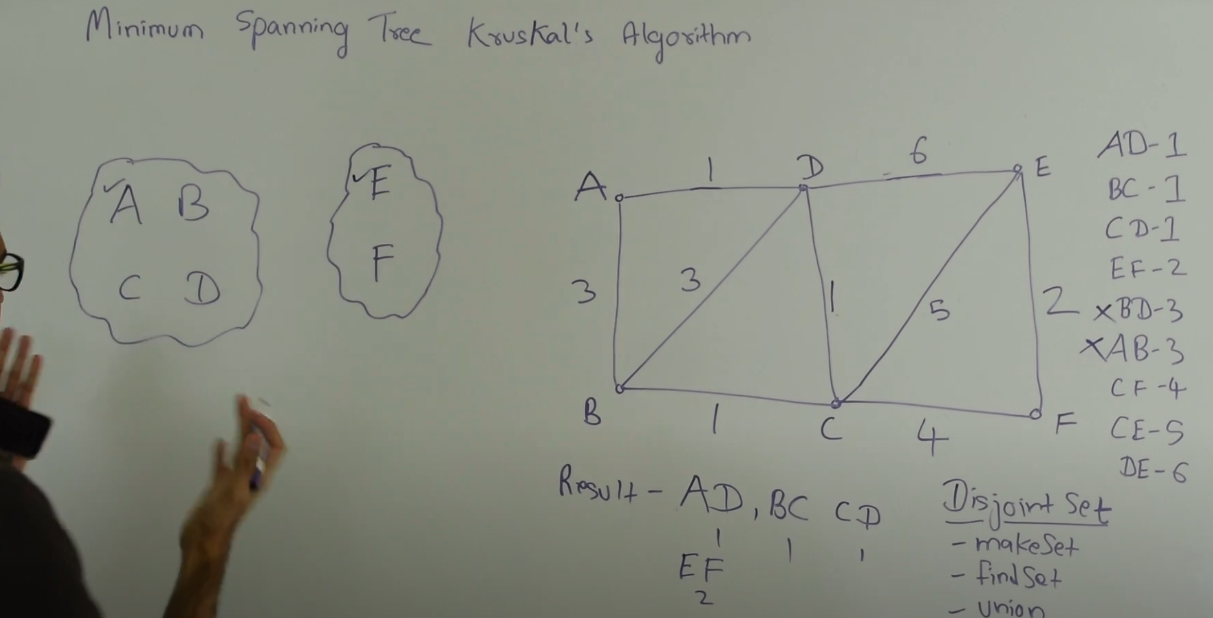 Minimum Spanning Tree Kruskal's Algorithm
A B
C D
E
F
A 1 D 6 E
3 3 1 5 2
B 1 C 4 F
AD-1
BC-1
CD-1
EF-2
xBD-3
xAB-3
CF-4
CE-5
DE-6
Result - AD, BC CD
1 1 1
EF
2
Disjoint Set
- makeSet
- findSet
- Union